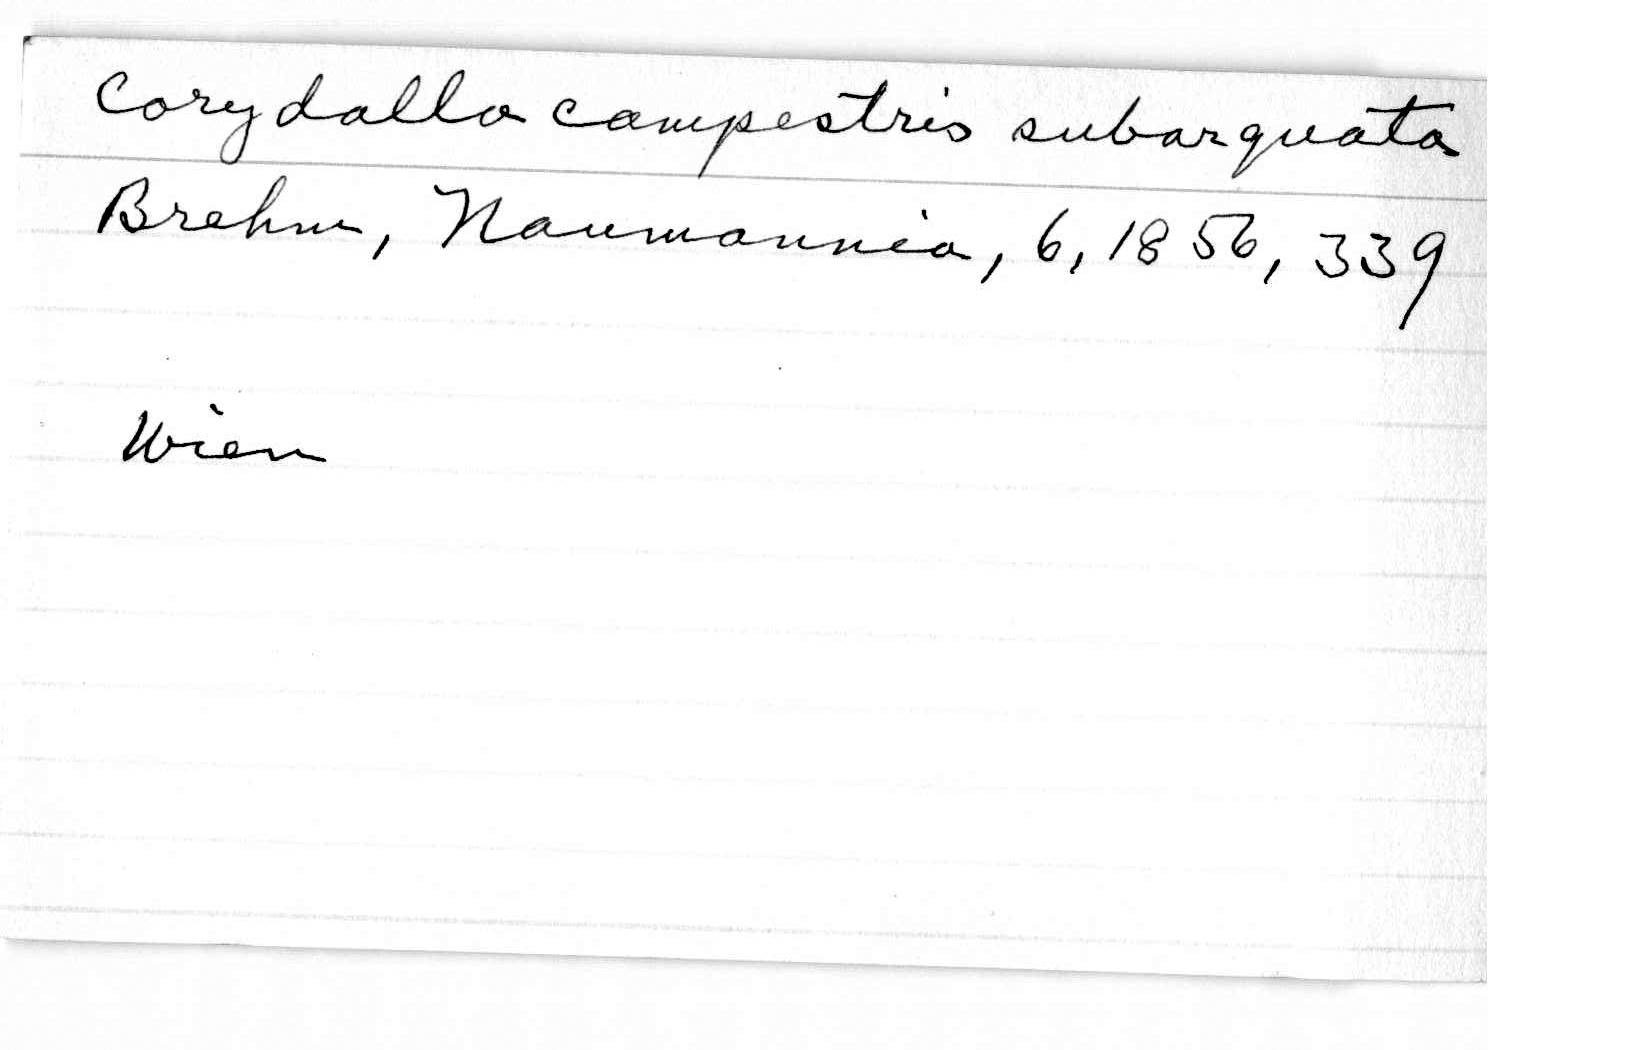 Corydalla campestris subarquata
Brehm, Naumannia, 6, 1856, 339
Wien